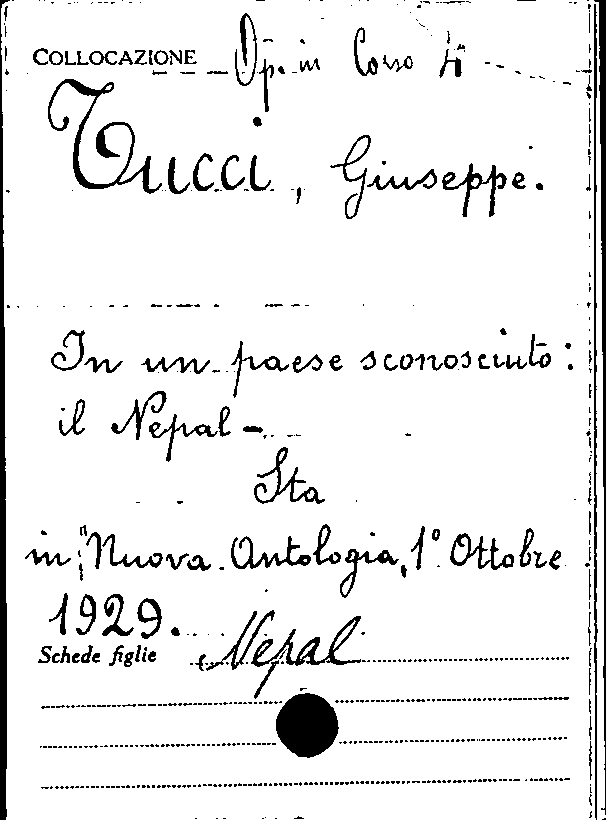 COLLOCAZIONE Op. in Corso 4
Tucci, Giuseppe.
In un paese sconosciuto:
il Nepal -
Sta
in "Nuova Antologia, 1° Ottobre
1929.
Schede figlie Nepal